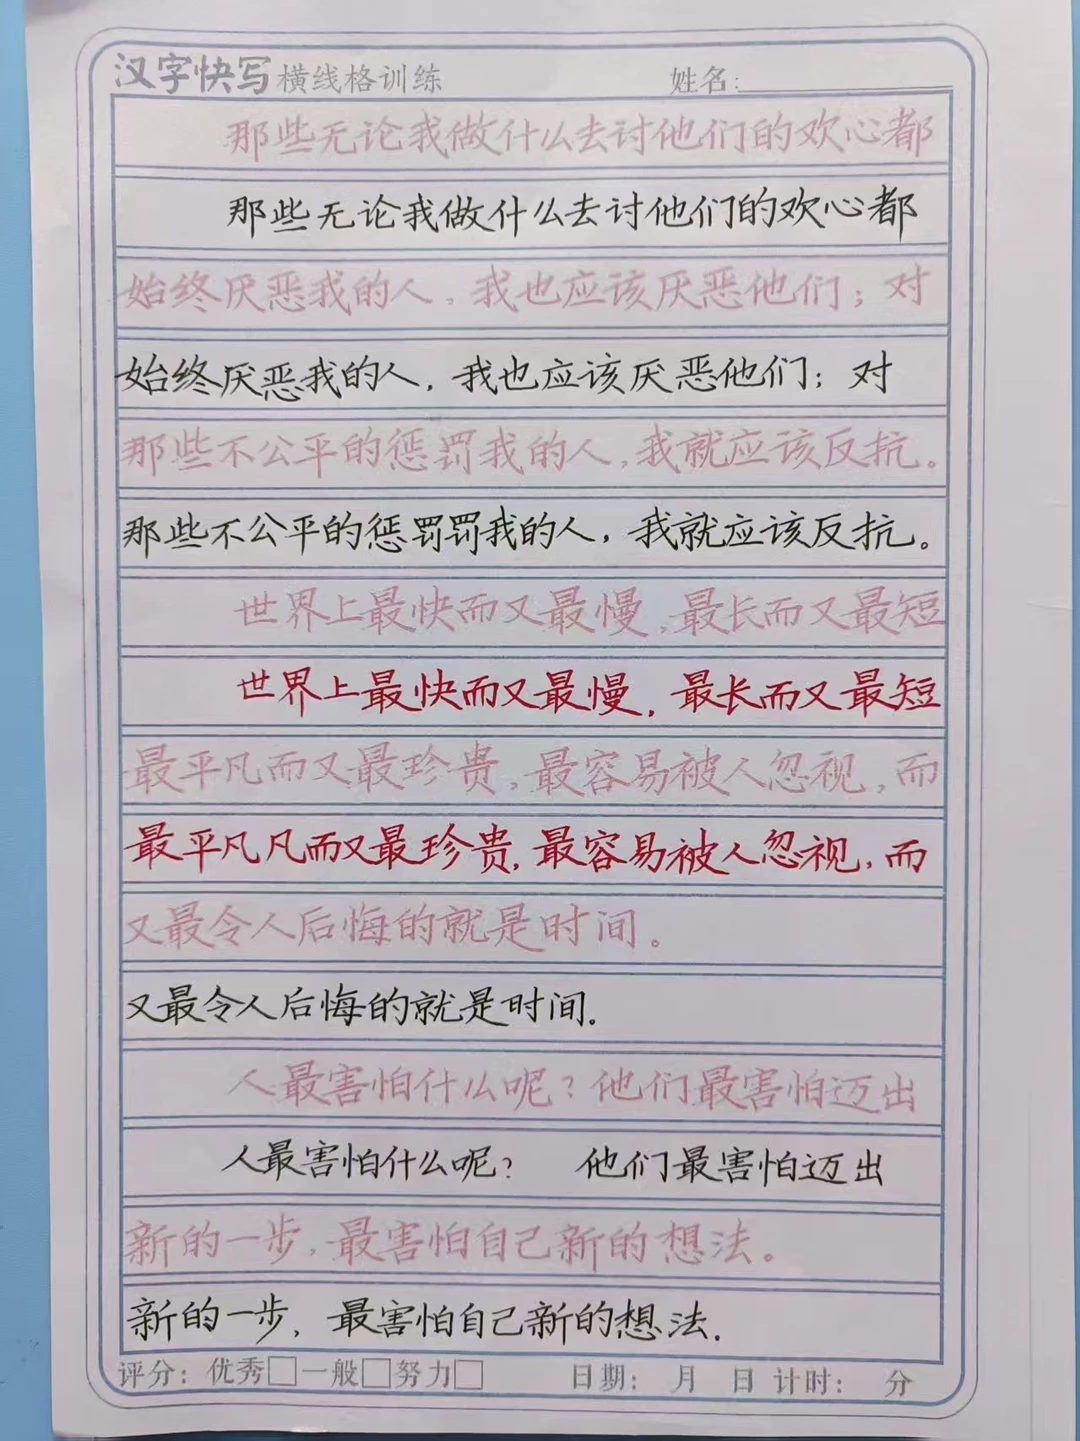 汉字快写横线格训练 姓名:
那些无论我做什么去讨他们的欢心都
那些无论我做什么去讨他们的欢心都
始终厌恶我的人,我也应该厌恶他们;对
始终厌恶我的人,我也应该厌恶他们;对
那些不公平的惩罚我的人,我就应该反抗。
那些不公平的惩罚罚我的人,我就应该反抗。
世界上最快而又最慢,最长而又最短
世界上最快而又最慢,最长而又最短
最平凡而又最珍贵,最容易被人忽视,而
最平凡凡而又最珍贵,最容易被人忽视,而
又最令人后悔的就是时间。
又最令人后悔的就是时间.
人最害怕什么呢?他们最害怕迈出
人最害怕什么呢? 他们最害怕迈出
新的一步,最害怕自己新的想法。
新的一步,最害怕自己新的想法.
评分:优秀□一般□努力□ 日期: 月 日 计时: 分